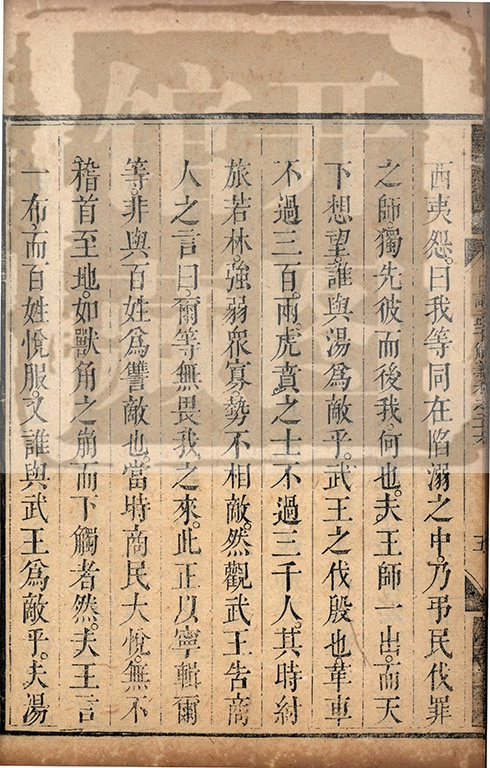 西夷怨。曰我等同在陷溺之中。乃弔民伐罪
之師獨先彼而後我何也。夫王師一出。而天
下想望。誰與湯爲敵乎。武王之伐殷也革車
不過三百。兩虎賁之士不過三千人。其時紂
旅若林。強弱衆寡勢不相敵。然觀武王告商
人之言曰。爾等無畏我之來。此正以寧輯爾
等。非與百姓爲讐敵也。當時商民大悅。無不
稽首至地。如獸角之崩而下觸者然。夫王言
一布。而百姓悅服。又誰與武王爲敵乎。夫湯